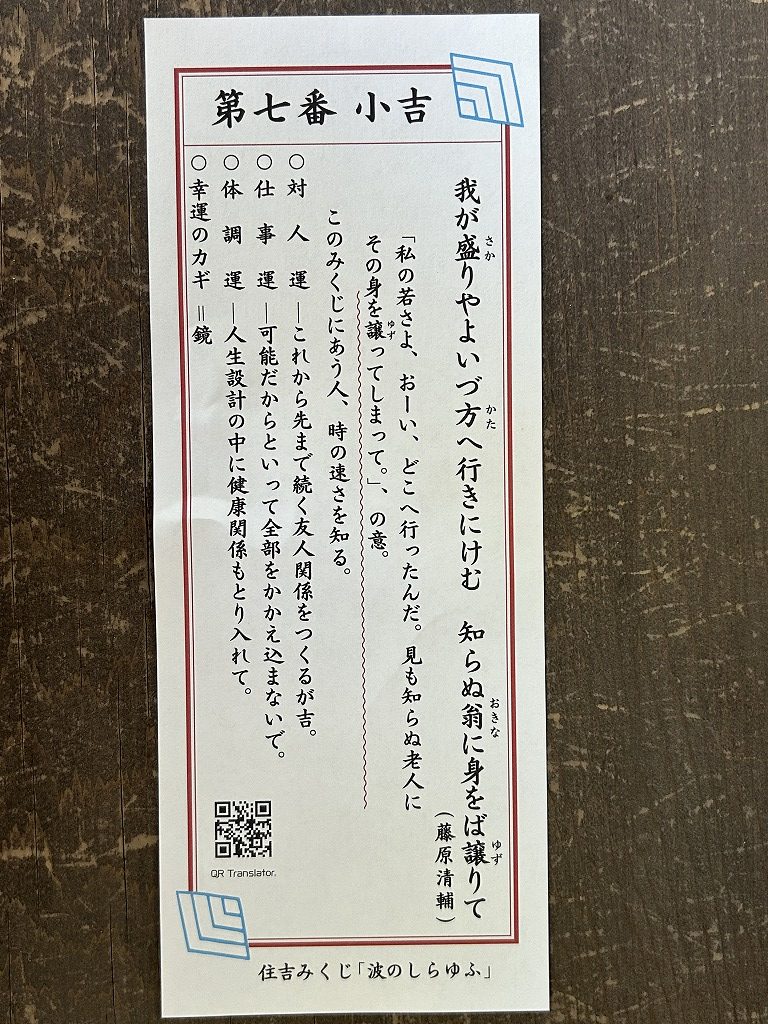 第七番 小吉
我が盛りやよいづ方へ行きにけむ 知らぬ翁に身をば譲りて
さか
かた
おきな
ゆず
（藤原清輔）
「私の若さよ、おーい、どこへ行ったんだ。見も知らぬ老人に
その身を譲ってしまって。」、の意。
ゆず
このみくじにあう人、時の速さを知る。
○対人運―これから先まで続く友人関係をつくるが吉。
○仕事運―可能だからといって全部をかかえ込まないで。
○体調運―人生設計の中に健康関係もとり入れて。
○幸運のカギ＝鏡
QR Translator.
住吉みくじ「波のしらゆふ」